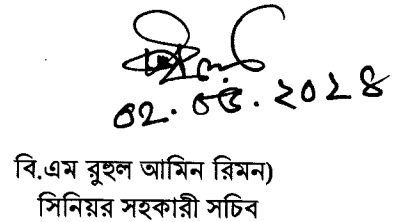 ০২.০৫.২০২৪
বি.এম রুহুল আমিন রিমন)
সিনিয়র সহকারী সচিব